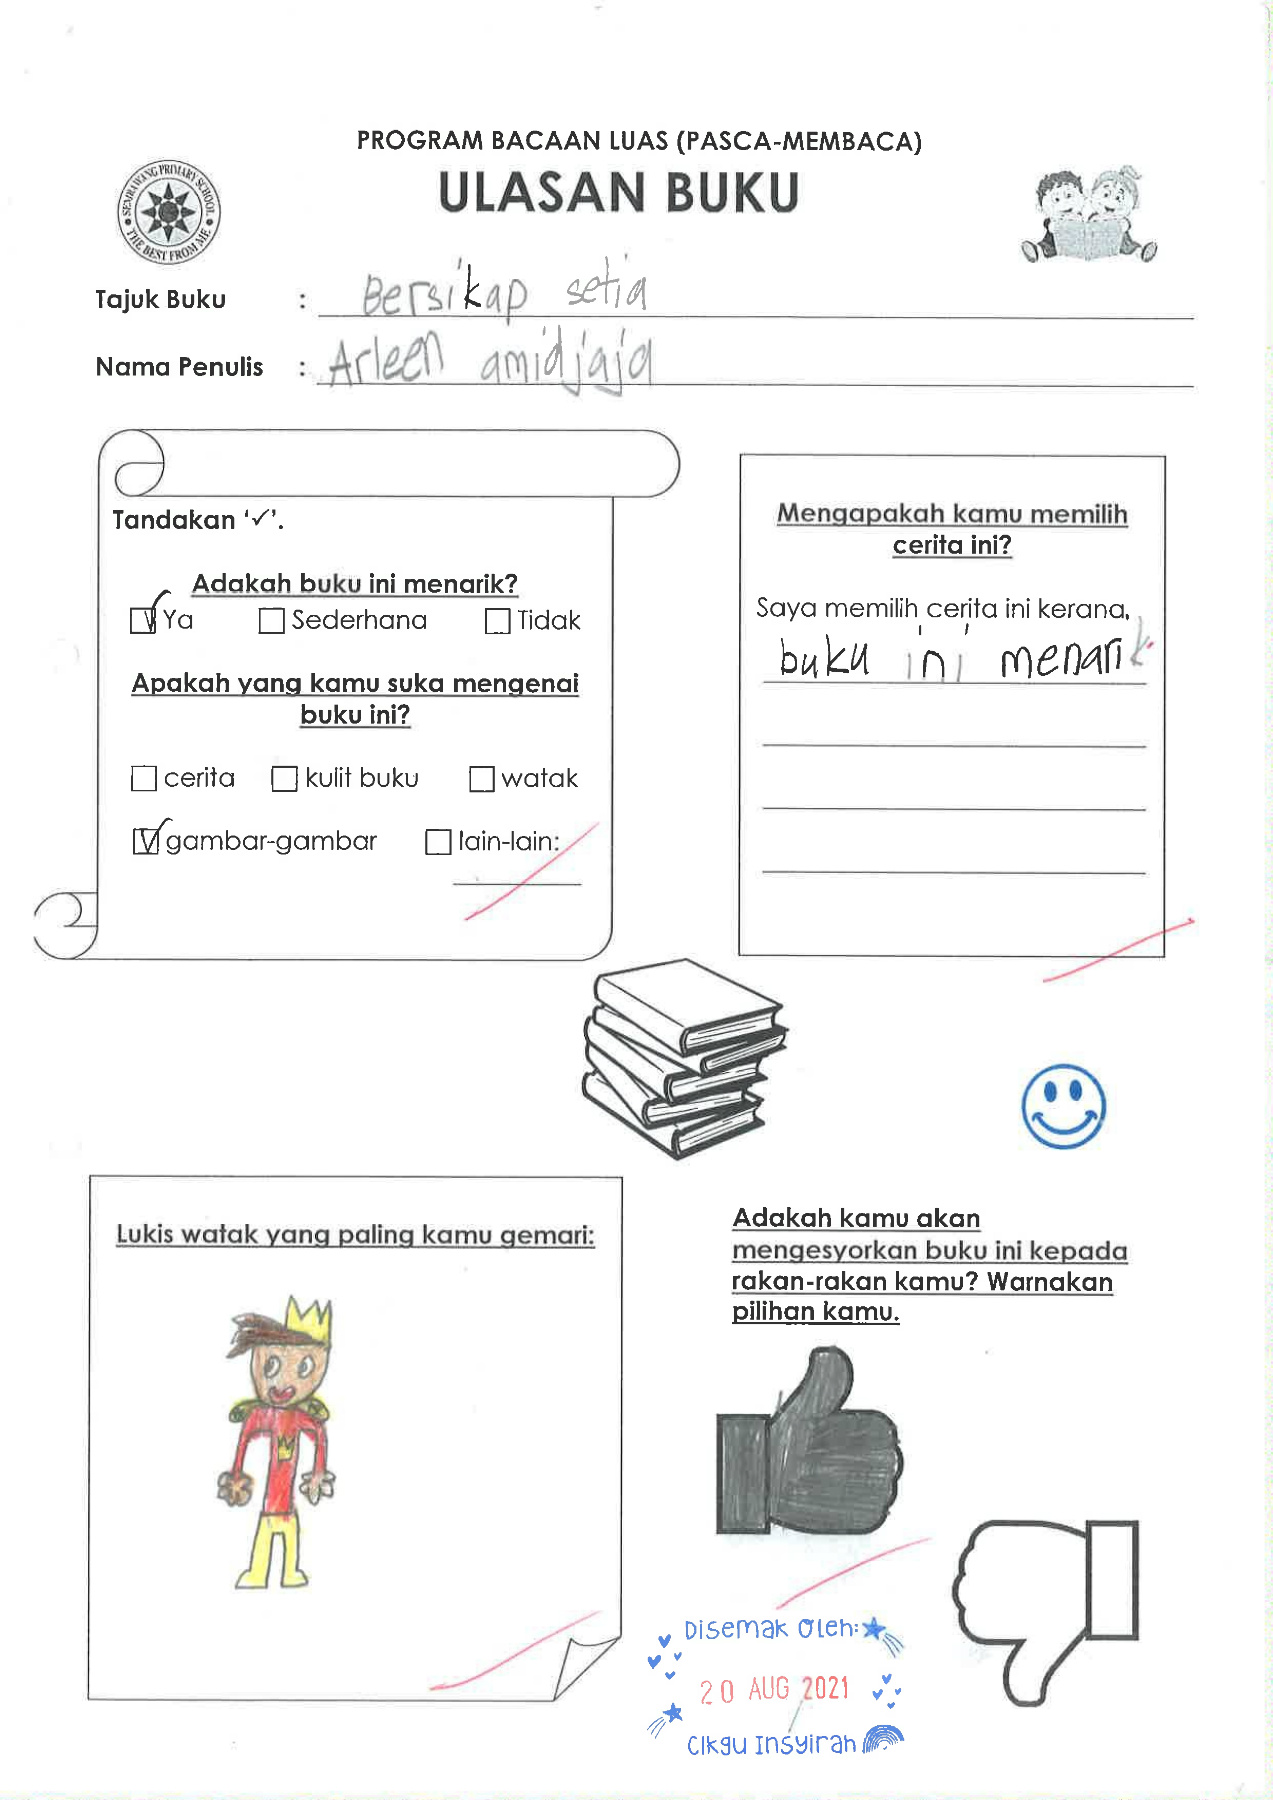 PROGRAM BACAAN LUAS (PASCA-MEMBACA)
ULASAN BUKU
SEMBAWANG PRIMARY SCHOOL
THE BEST FROM ME
Tajuk Buku : Bersikap setia
Nama Penulis : Arleen amidjaja
Tandakan ‘✓’.
Adakah buku ini menarik?
✓ Ya ☐ Sederhana ☐ Tidak
Apakah yang kamu suka mengenai
buku ini?
☐ cerita ☐ kulit buku ☐ watak
✓ gambar-gambar ☐ lain-lain:
Mengapakah kamu memilih
cerita ini?
Saya memilih cerita ini kerana,
buku ini menarik.
Lukis watak yang paling kamu gemari:
Adakah kamu akan
mengesyorkan buku ini kepada
rakan-rakan kamu? Warnakan
pilihan kamu.
Disemak Oleh:
20 AUG 2021
Cikgu Insyirah